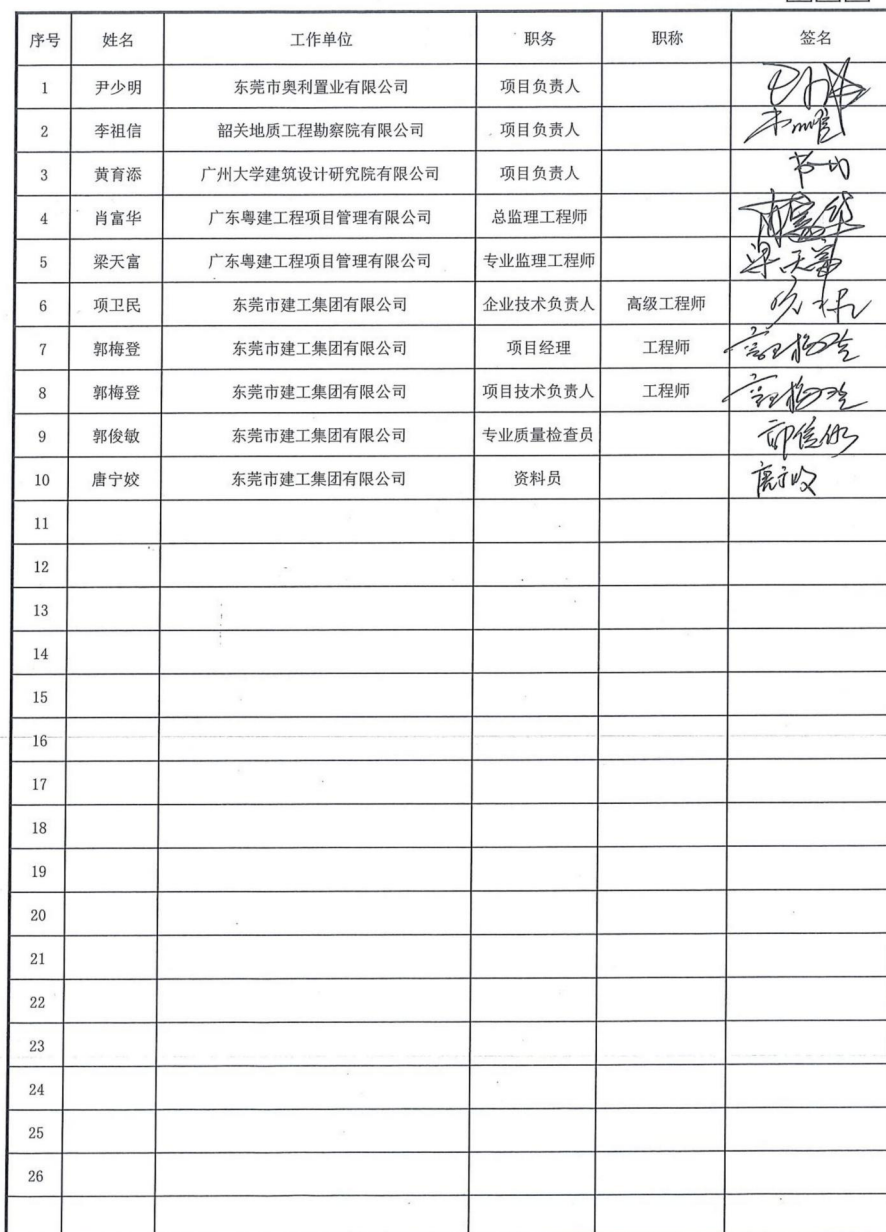 序号 姓名 工作单位 职务 职称 签名
1 尹少明 东莞市奥利置业有限公司 项目负责人
2 李祖信 韶关地质工程勘察院有限公司 项目负责人
3 黄育添 广州大学建筑设计研究院有限公司 项目负责人
4 肖富华 广东粤建工程项目管理有限公司 总监理工程师 肖富华
5 梁天富 广东粤建工程项目管理有限公司 专业监理工程师 梁天富
6 项卫民 东莞市建工集团有限公司 企业技术负责人 高级工程师
7 郭梅登 东莞市建工集团有限公司 项目经理 工程师 郭梅登
8 郭梅登 东莞市建工集团有限公司 项目技术负责人 工程师 郭梅登
9 郭俊敏 东莞市建工集团有限公司 专业质量检查员
10 唐宁姣 东莞市建工集团有限公司 资料员 唐宁姣
11
12
13
14
15
16
17
18
19
20
21
22
23
24
25
26